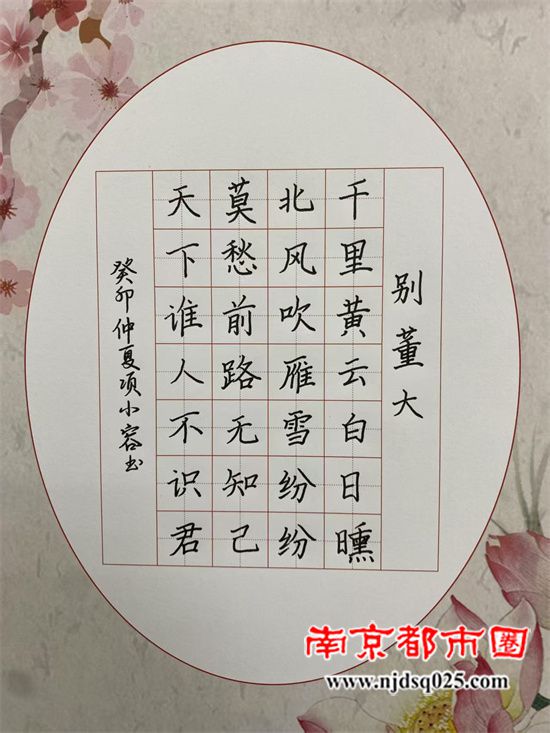 别董大
千里黄云白日曛
北风吹雁雪纷纷
莫愁前路无知己
天下谁人不识君
癸卯仲夏项小容书
南京都市圈
www.njdsq025.com